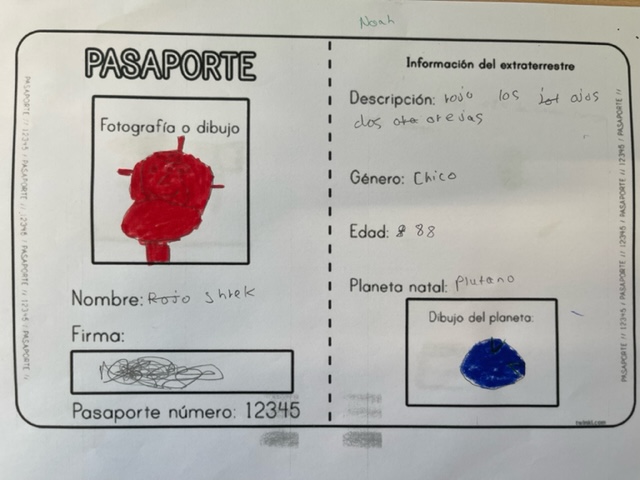 Noah
PASAPORTE
Fotografía o dibujo
Nombre: Rojo Shrek
Firma:
Pasaporte número: 12345
Información del extraterrestre
Descripción: rojo los ojos
dos orejas
Género: Chico
Edad: 88
Planeta natal: Plutano
Dibujo del planeta:
twinkl.com
PASAPORTE // 12345 / PASAPORTE // 12345 / PASAPORTE // 12345 / PASAPORTE //
PASAPORTE // 12345 / PASAPORTE // 12345 / PASAPORTE // 12345 / PASAPORTE //